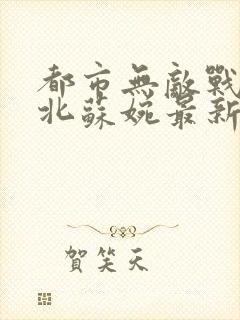 都市無敵戰
北蘇婉最新
賀笑天